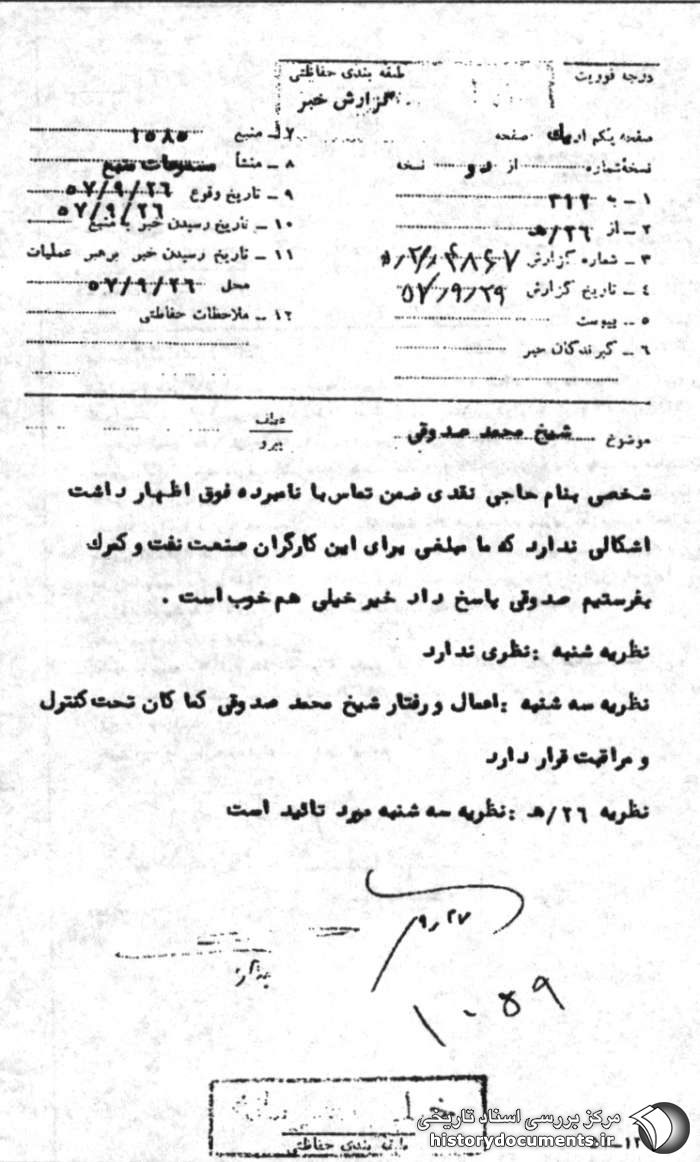 درجه فوریت
طبقه بندی حفاظتی
گزارش خبر
صفحه یکم از یک صفحه
نسخه شماره از دو نسخه
۱ - به ۳۱۲
۲ - از ۲۶/هـ
۳ - شماره گزارش
۴ - تاریخ گزارش ۵۷/۹/۲۹
۵ - پیوست
۶ - گیرندگان خبر
۷ - منبع ۱۵۸۵
۸ - منشأ مسموعات منبع
۹ - تاریخ وقوع ۵۷/۹/۲۶
۱۰ - تاریخ رسیدن خبر بمنبع ۵۷/۹/۲۶
۱۱ - تاریخ رسیدن خبر برهبر عملیات
محل ۵۷/۹/۲۶
۱۲ - ملاحظات حفاظتی
موضوع شیخ محمد صدوقی
عطف
پیرو
شخصی بنام حاجی نقدی ضمن تماس با نامبرده فوق اظهار داشت
اشکالی ندارد که ما مبلغی برای این کارگران صنعت نفت و گمرک
بفرستیم صدوقی پاسخ داد خیر خیلی هم خوب است .
نظریه شنبه : نظری ندارد
نظریه سه شنبه : اعمال و رفتار شیخ محمد صدوقی کما کان تحت کنترل
و مراقبت قرار دارد
نظریه ۲۶/هـ : نظریه سه شنبه مورد تائید است
۹/۲۷
۱۰۵۹
طبقه بندی حفاظتی
مرکز بررسی اسناد تاریخی
historydocuments.ir